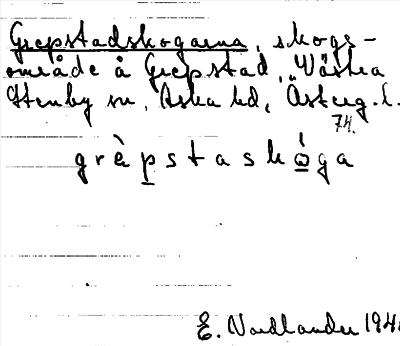 Grepstadskogarna, skogs-
område å Grepstad, Västra
Stenby sn, Aska hd, Österg. l.
74.
grèpstaskóga
E. Nordlander 194